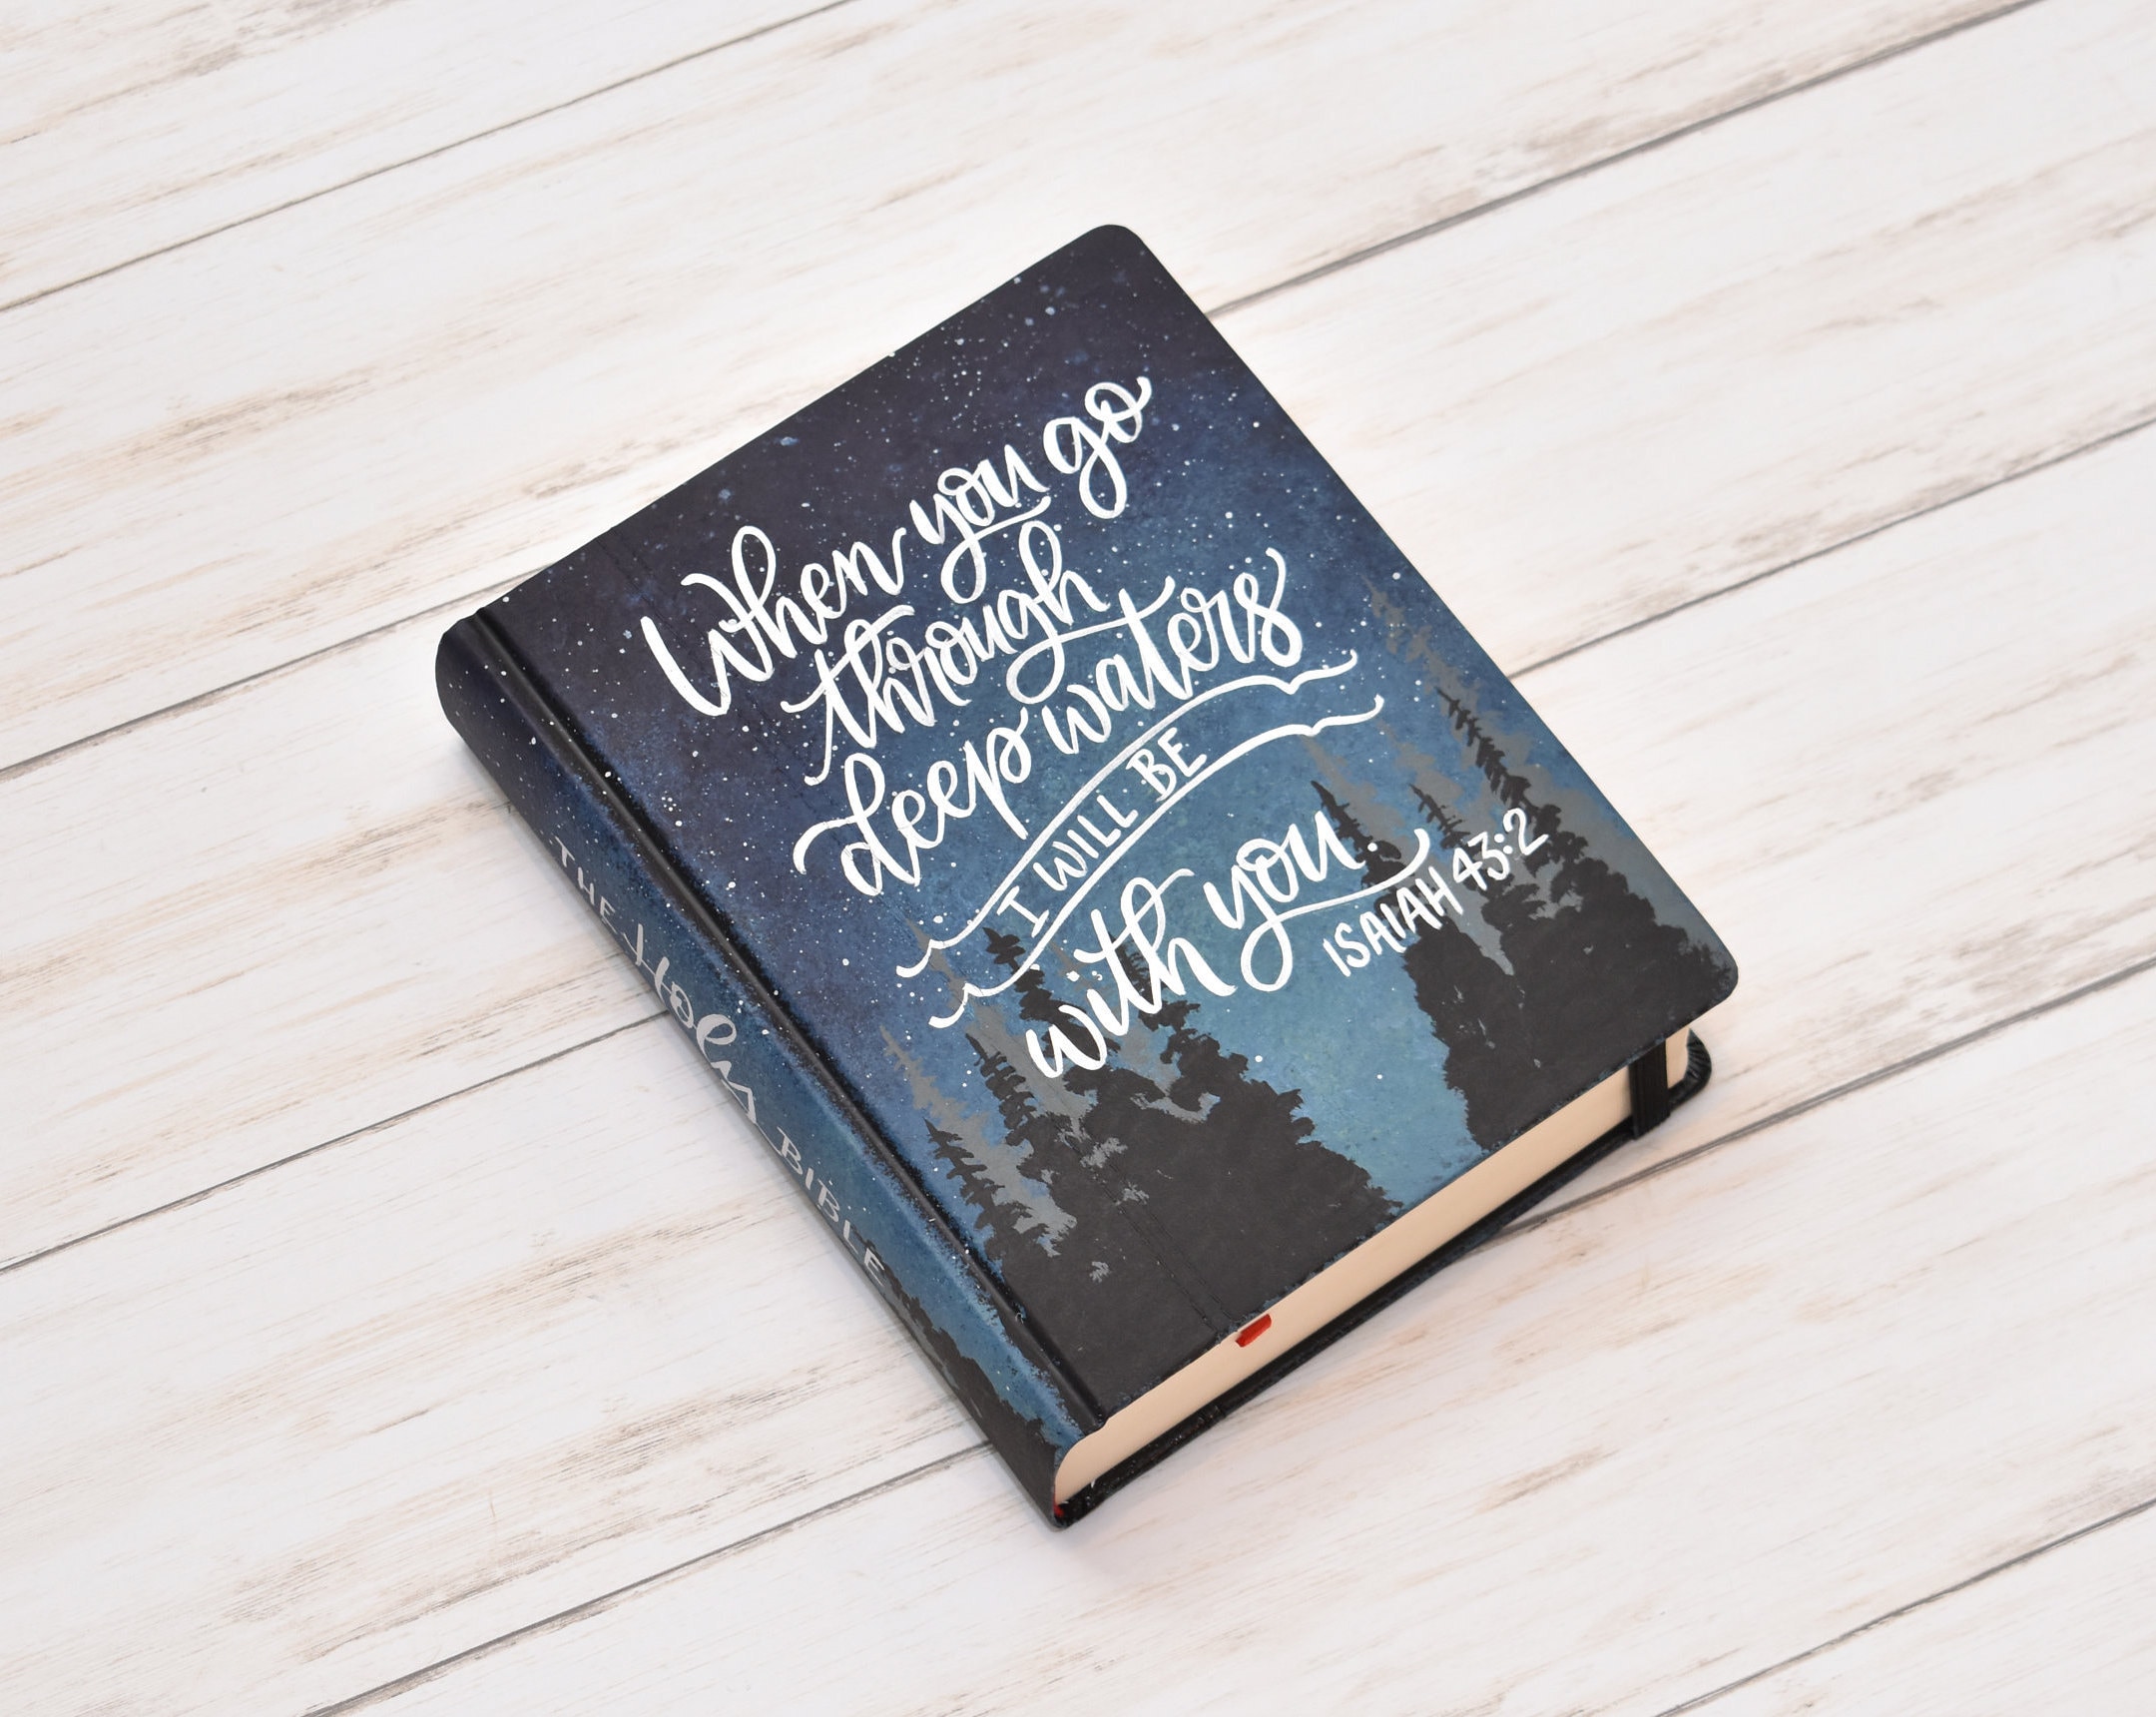 When you go
through
deep waters
I WILL BE
with you.
ISAIAH 43:2
THE Holy BIBLE